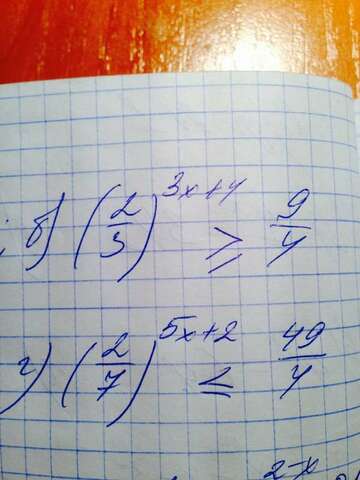 б) (2/3)^(3x+4) ≥ 9/4
г) (2/7)^(5x+2) ≤ 49/4
2-x